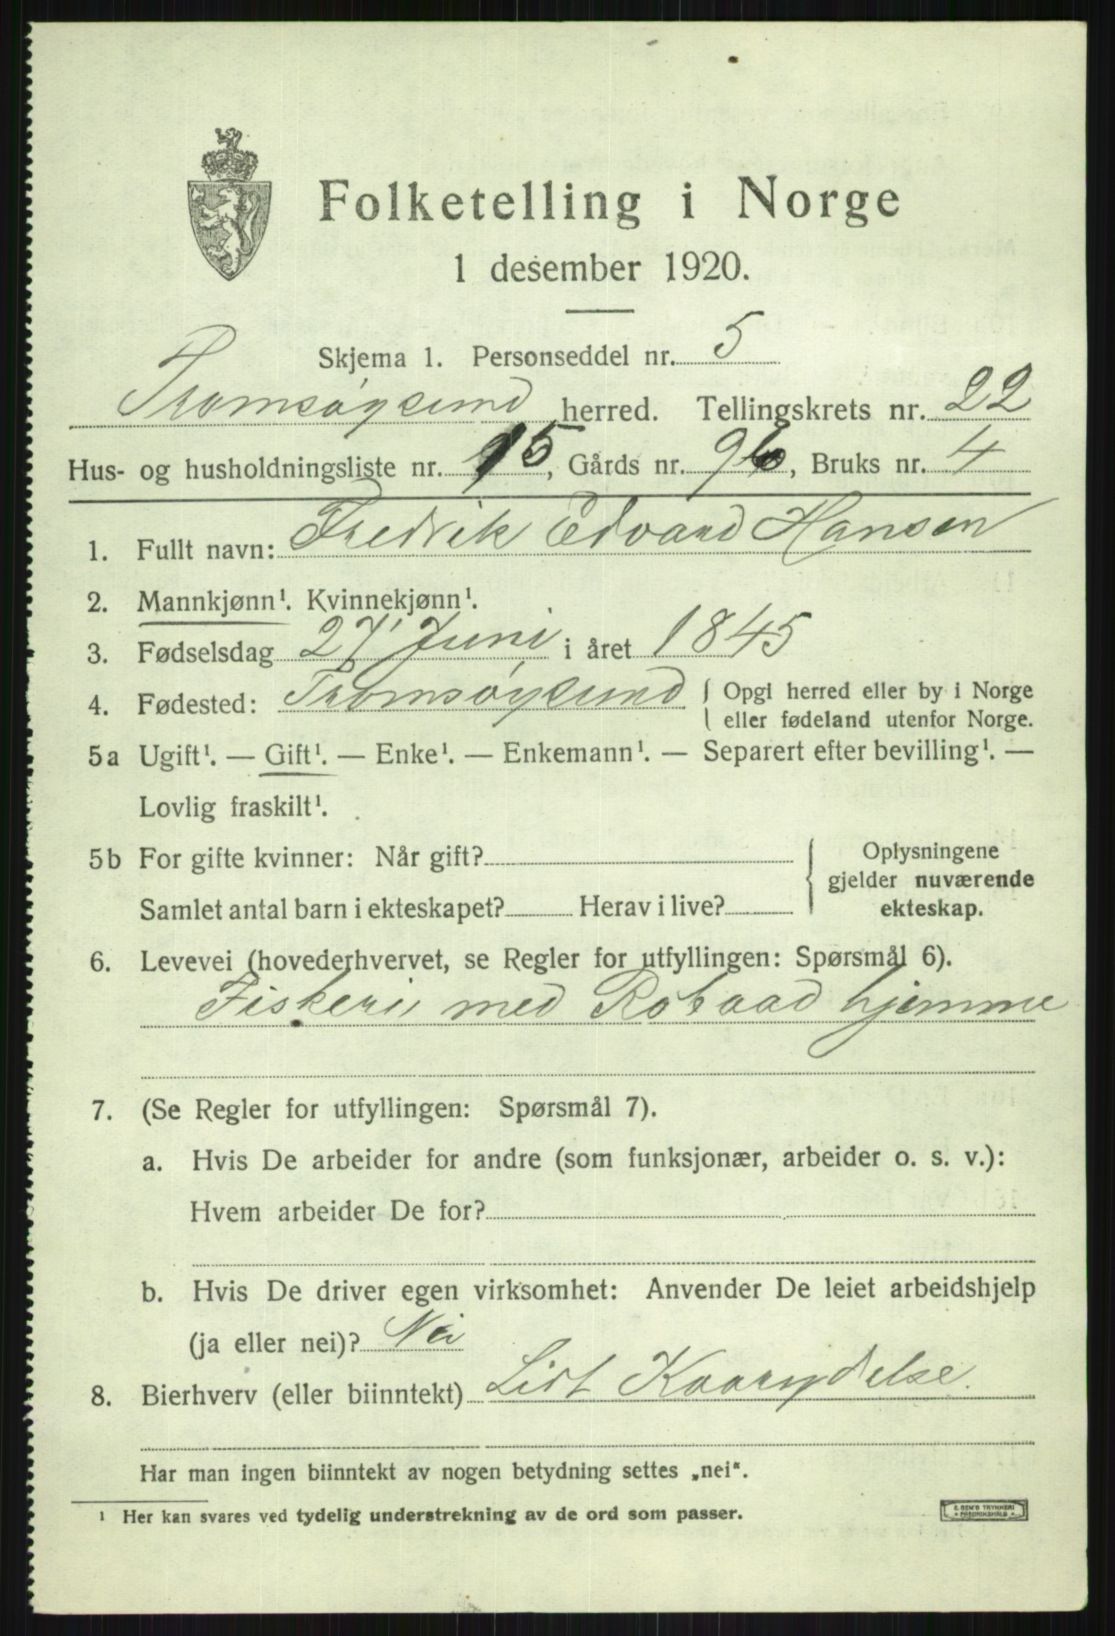 Folketelling i Norge
1 desember 1920.
Skjema 1. Personseddel nr. 5
Tromsøysund herred. Tellingskrets nr. 22
Hus- og husholdningsliste nr. 15, Gårds nr. 96, Bruks nr. 4
1. Fullt navn: Fredrik Edvard Hansen
2. Mannkjønn¹. Kvinnekjønn¹.
3. Fødselsdag 27 Juni i året 1845
4. Fødested: Tromsøysund { Opgi herred eller by i Norge
eller fødeland utenfor Norge.
5a Ugift¹. — Gift¹. — Enke¹. — Enkemann¹. — Separert efter bevilling¹. —
Lovlig fraskilt¹.
5b For gifte kvinner: Når gift?
Samlet antal barn i ekteskapet? Herav i live?
Oplysningene
gjelder nuværende
ekteskap.
6. Levevei (hovederhvervet, se Regler for utfyllingen: Spørsmål 6).
Fiskeri med Robaad hjemme
7. (Se Regler for utfyllingen: Spørsmål 7).
a. Hvis De arbeider for andre (som funksjonær, arbeider o. s. v.):
Hvem arbeider De for?
b. Hvis De driver egen virksomhet: Anvender De leiet arbeidshjelp
(ja eller nei)? Nei
8. Bierhverv (eller biinntekt) Lidt Kaarydelse.
Har man ingen biinntekt av nogen betydning settes „nei".
¹ Her kan svares ved tydelig understrekning av de ord som passer.